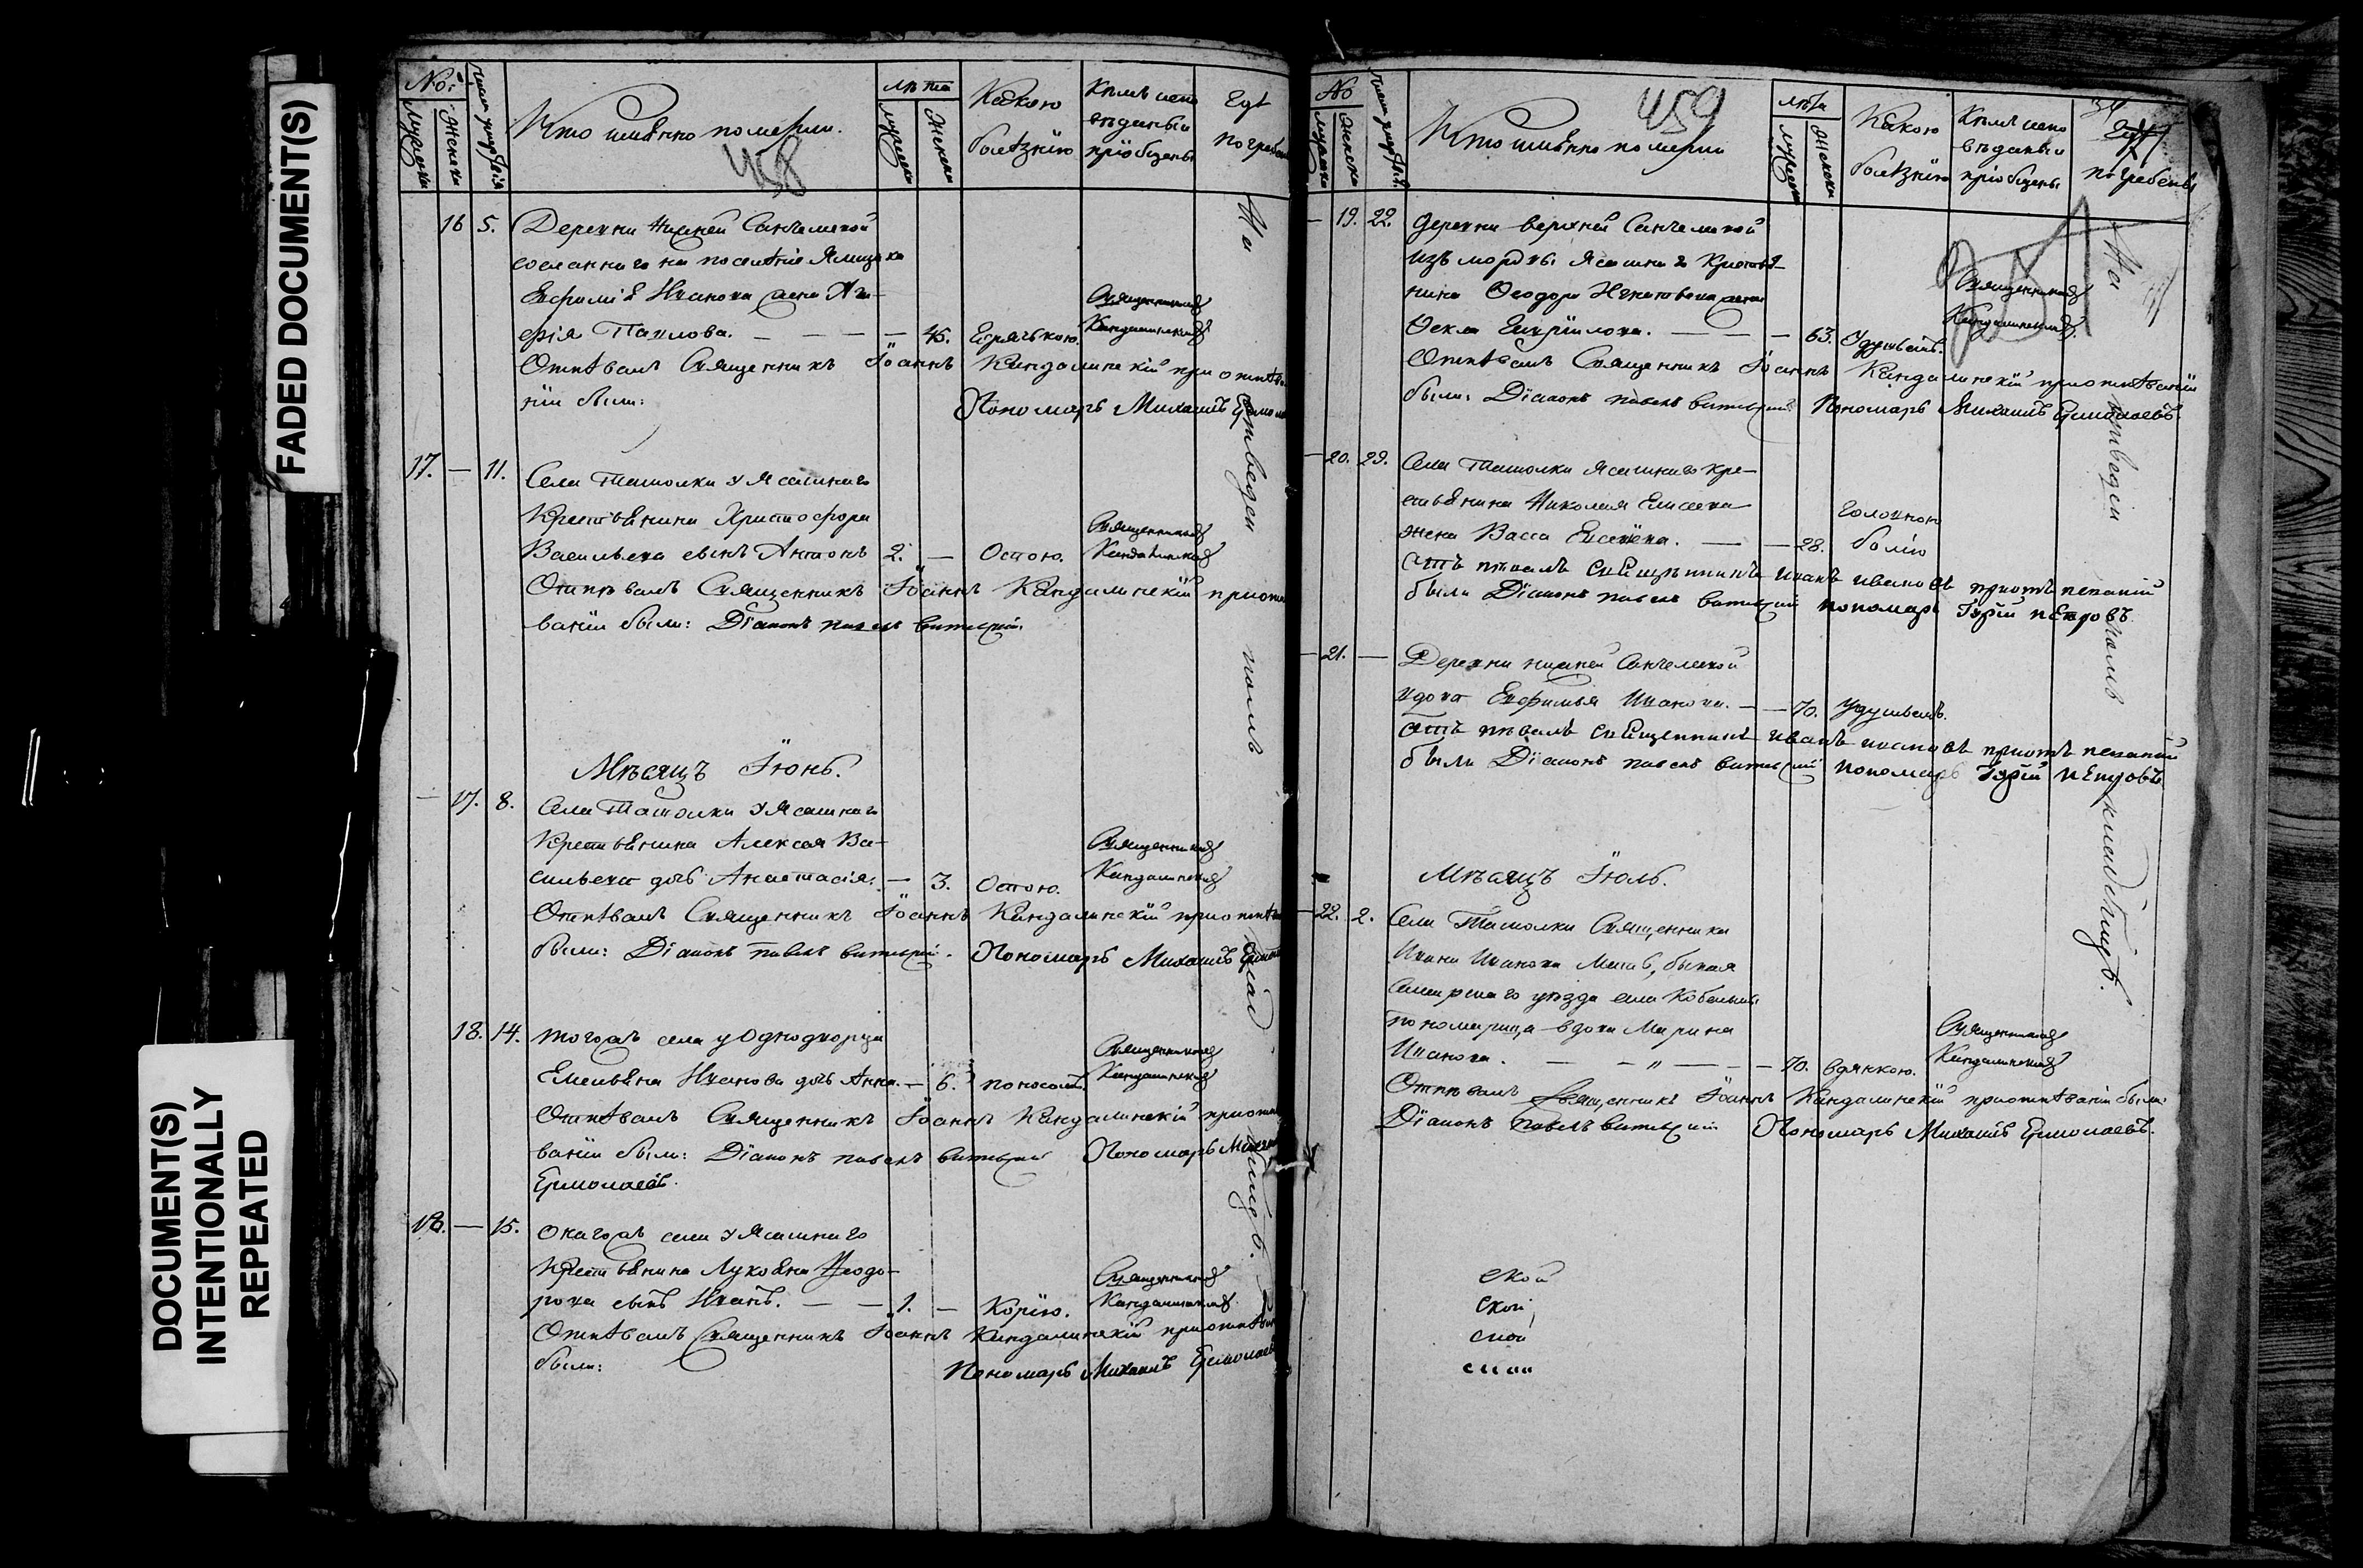 FADED DOCUMENT(S)
DOCUMENT(S)
INTENTIONALLY
REPEATED
№:
Мужеска
Женска
Кто имѣнно померли.
458
лѣта
мужеска
Женска
Какою
болѣзнію
Кѣмъ испо
вѣданы и
пріобщены
Гдѣ
16 5. Деревни Нижней Санчелѣской
сосланнаго на поселѣніе Ямщика
Иванова жена
Павлова. — — — 45. Горячькою.
Священникомъ
Кандалинскимъ
Отпѣвалъ Священникъ Іоаннъ Кандалинскій при отпѣва
ніи были: Пономарь Михаилъ
17. — 11. Села Ташолки у Ясашнаго
Крестьянина Христофора
Васильева сынъ Антонъ 2. — Оспою.
Священникомъ
Кандалинскимъ
Отпѣвалъ Священникъ Іоаннъ Кандалинскій при отпѣ
ваніи были: Діаконъ павелъ
Мѣсяцъ Іюнь.
— 17. 8. Села Ташолки у Ясашнаго
Крестьянина Алексея Ва-
сильева дочь Анастасія. — 3. Оспою.
Священникомъ
Кандалинскимъ
Отпѣвалъ Священникъ Іоаннъ Кандалинскій при отпѣ
были: Діаконъ павелъ Пономарь Михаилъ
18. 14. тогожъ села у Однодворца
Емельяна Иванова дочь Анна. — 6. поносомъ.
Священникомъ
Кандалинскимъ
Отпѣвалъ Священникъ Іоаннъ Кандалинскій при отпѣ
ваніи были: Діаконъ павелъ Пономарь
Ермолаевъ.
18. — 15. Онагожъ села у Ясашнаго
Крестьянина Лукояна Феодо-
рова сынъ Иванъ. — — 1. — Корію.
Священникомъ
Кандалинскимъ
Отпѣвалъ Священникъ Іоаннъ Кандалинскій при отпѣва
были: Пономарь Михаилъ Ермолаевъ
На
кладбищѣ.
№
мужеска
женска
Кто имѣнно померли
459
лѣта
мужеска
Женска
Какою
болѣзнію
Кѣмъ испо
вѣданы и
пріобщены
34
Гдѣ
погребены
— 19. 22. Деревни верхней Санчелѣской
изъ мордвы Ясашнаго Крестья-
нина Феодора Игнатьева жена
Фекла — — 63. Удушьемъ.
Священникомъ
Кандалинскимъ.
Отпѣвалъ Священникъ Іоаннъ Кандалинскій при отпѣваніи
были: Діаконъ павелъ Пономарь Михаилъ Ермолаевъ.
— 20. 29. Села Ташолки Ясашнаго Кре-
стьянина Николая Елисеева
жена Васса — — 28. головною
болію
отъ пѣвалъ священникъ иванъ ивановъ при отъ певаніи
были Діаконъ павелъ пономарь Гурій пЕтровъ.
— 21. — Деревни нижней Санчелѣской
вдова Евфимья Иванова. — — 70. удушьемъ.
отъ пѣвалъ священникъ иванъ ивановъ при отъ певаніи
были Діаконъ павелъ пономарь Гурій пЕтровъ
Мѣсяцъ Іюль.
— 22. 2. Села Ташолки Священника
Ивана Иванова Мать, бывая
уѣзда села
пономарица вдова Марина
Иванова. — — „ — — — 70. водянкою.
Священникомъ
Кандалинскимъ
Отпѣвалъ Священникъ Іоаннъ Кандалинскій при отпѣваніи были:
Діаконъ Павелъ Пономарь Михаилъ Ермолаевъ.
ской
ской
ской
На
отведен
номъ
кладбищѣ.